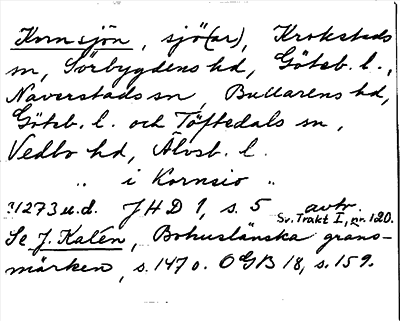 Kornsjön, sjö(ar), Krokstads
sn, Sörbygdens hd, Göteb. l.,
Naverstads sn, Bullarens hd,
Göteb. l. och Töftedals sn,
Vedbo hd, Älvsb. l.
" i Kornsio "
1273 u.d. JHD 1, s. 5 avtr.
Sv. Trakt I, nr. 120.
Se J. Kalén, Bohuslänska gräns-
märken, s. 147 o. OGB 18, s. 159.